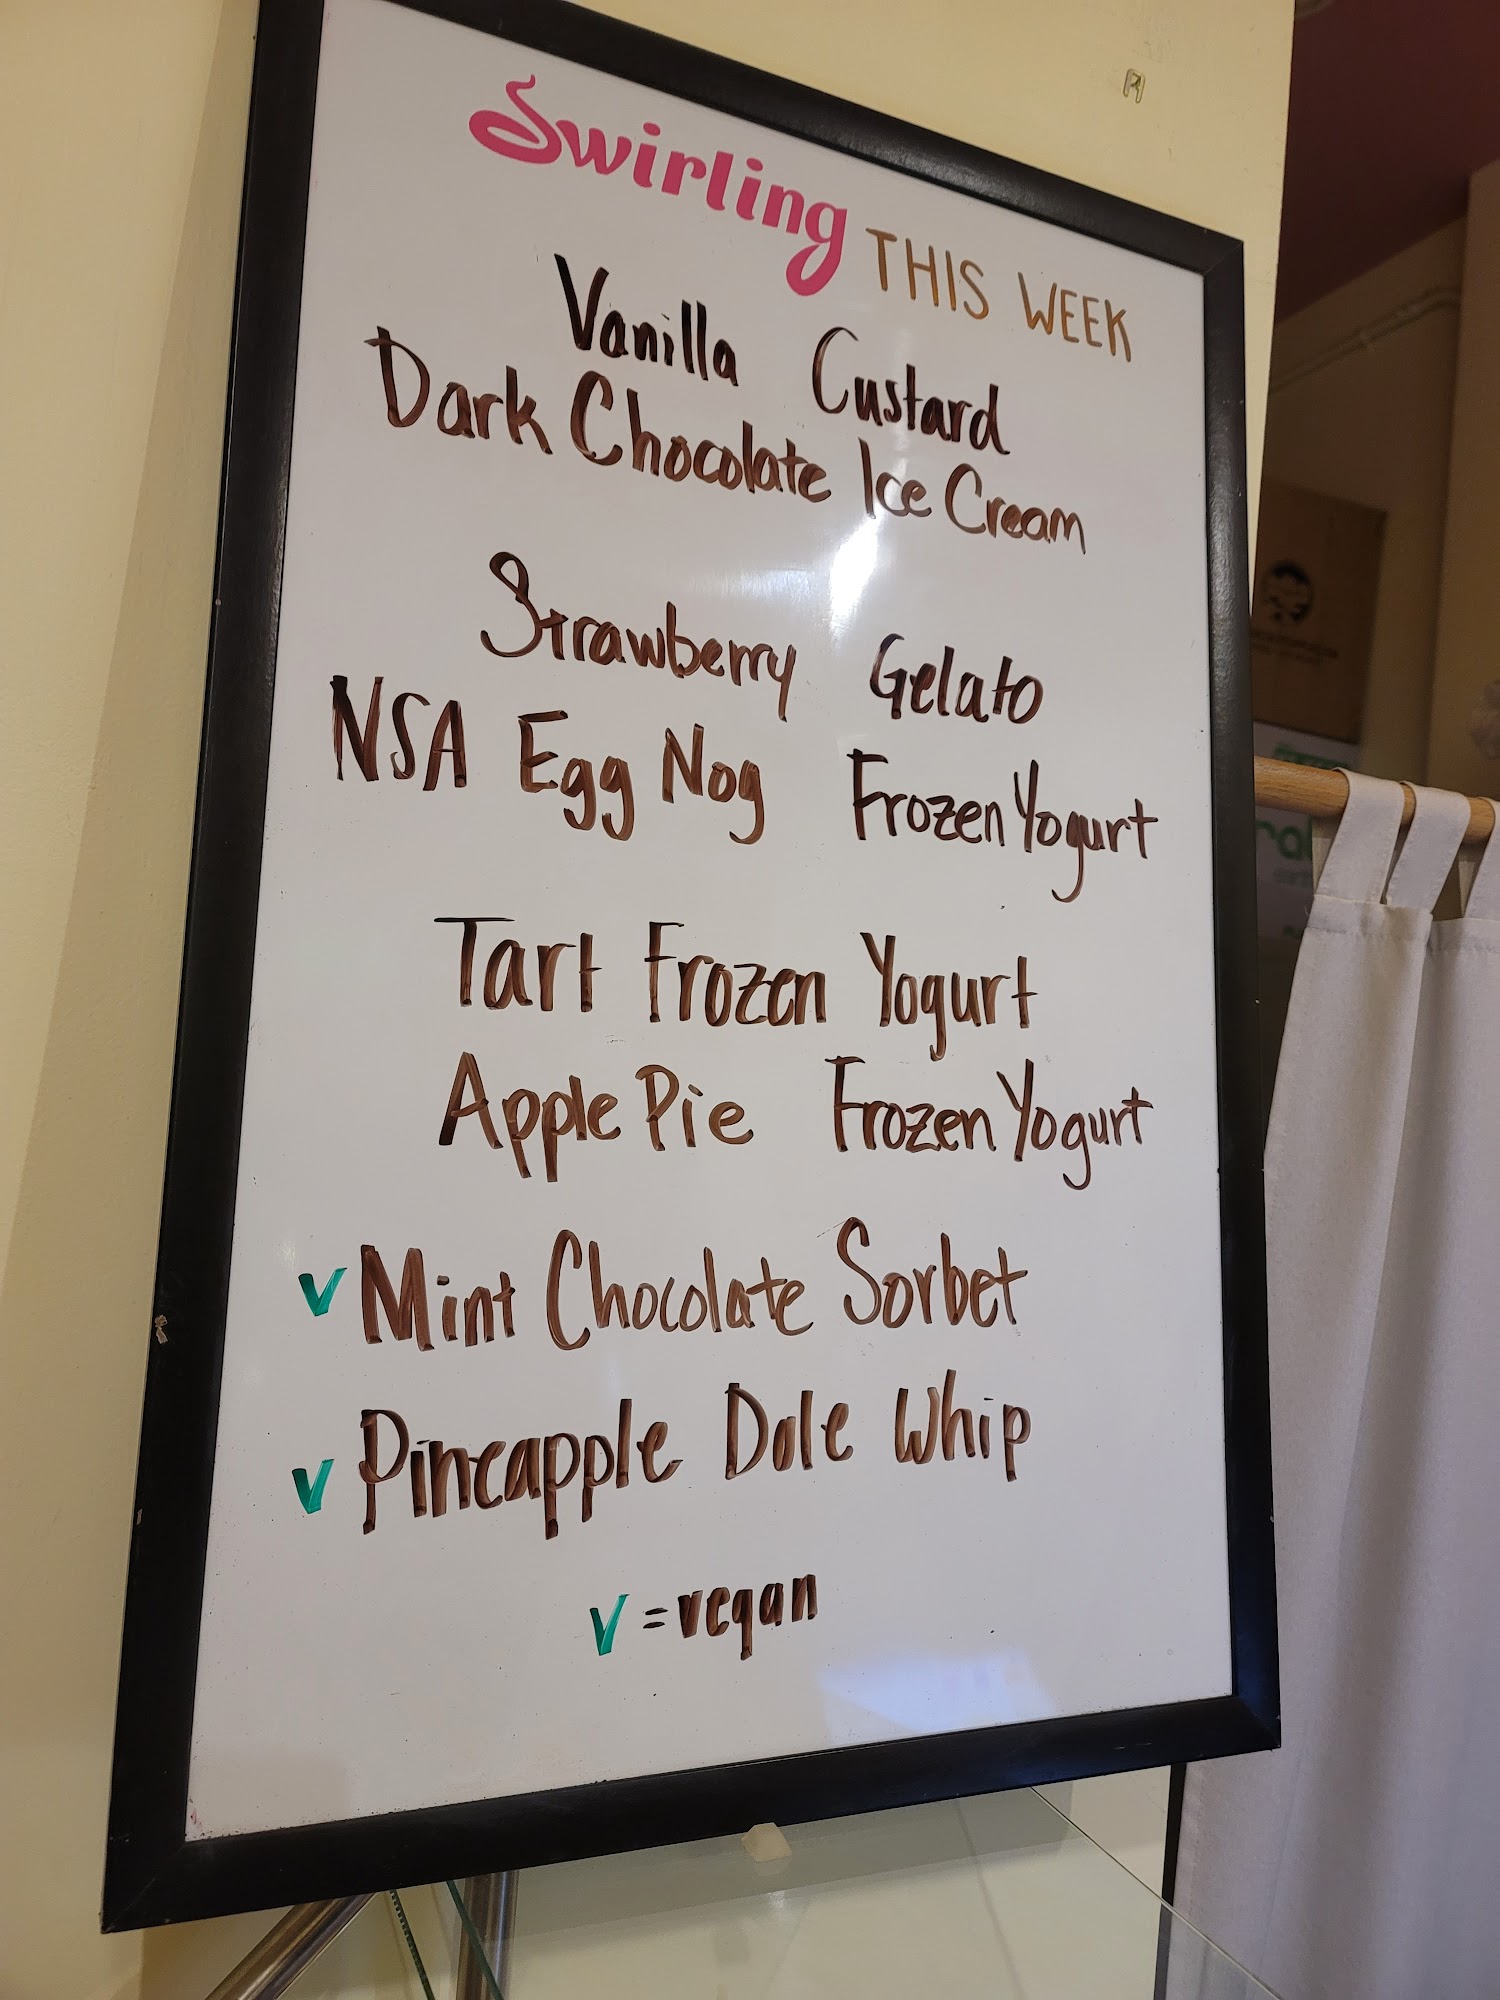 Swirling THIS WEEK
Vanilla Custard
Dark Chocolate Ice Cream
Strawberry Gelato
NSA Egg Nog Frozen Yogurt
Tart Frozen Yogurt
Apple Pie Frozen Yogurt
V Mint Chocolate Sorbet
V Pineapple Dole Whip
V = vegan